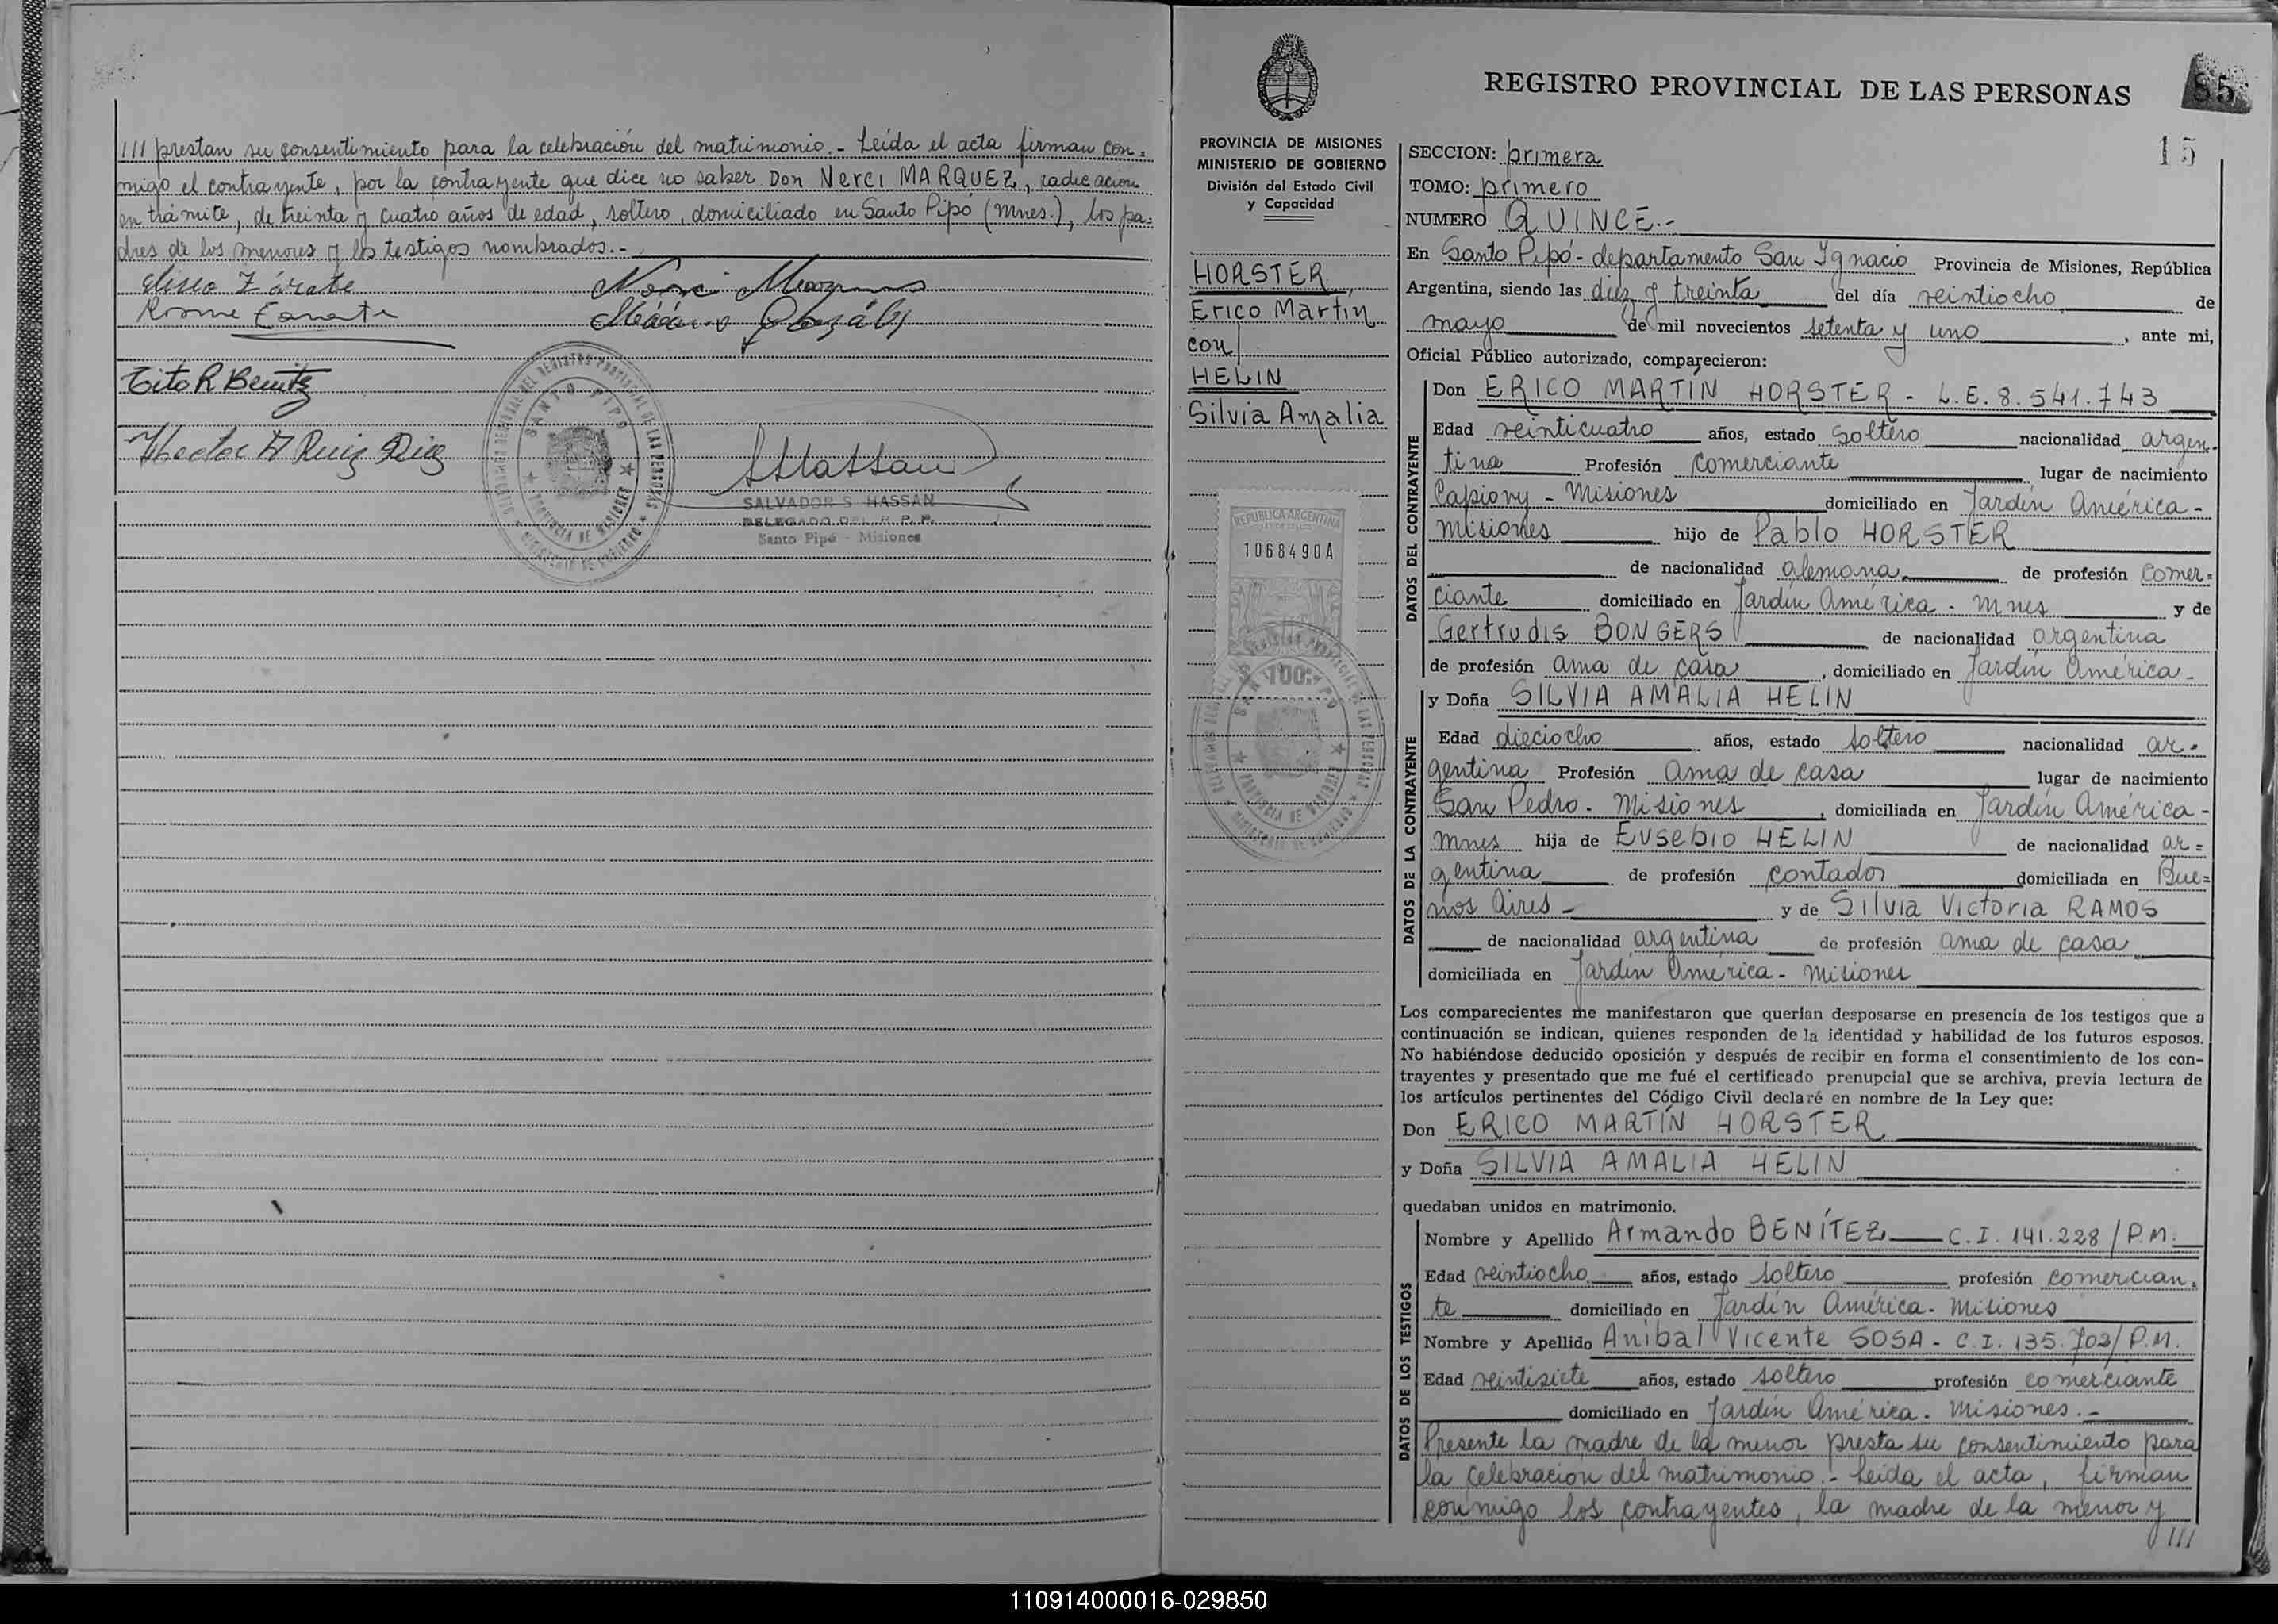 /// prestan su consentimiento para la celebración del matrimonio.- Leída el acta firman con-
migo el contrayente, por la contrayente que dice no saber Don Nerci MARQUEZ, radicación
en trámite, de treinta y cuatro años de edad, soltero, domiciliado en Santo Pipó (Mnes.), los pa-
dres de los menores y los testigos nombrados.-
Tito R Benitez
Hector A Ruiz Diaz
SALVADOR S. HASSAN
DELEGADO DEL R. P. P.
Santo Pipó - Misiones
REGISTRO PROVINCIAL DE LAS PERSONAS
85
15
PROVINCIA DE MISIONES
MINISTERIO DE GOBIERNO
División del Estado Civil
y Capacidad
HORSTER,
Erico Martín
con
HELIN
Silvia Amalia
REPUBLICA ARGENTINA
1068490A
100
SECCION: primera
TOMO: primero
NUMERO QUINCE.-
En Santo Pipó - departamento San Ignacio Provincia de Misiones, República
Argentina, siendo las diez y treinta del día veintiocho de
mayo de mil novecientos setenta y uno, ante mi,
Oficial Público autorizado, comparecieron:
DATOS DEL CONTRAYENTE
Don ERICO MARTIN HORSTER - L.E. 8.541.743
Edad veinticuatro años, estado soltero nacionalidad argen-
tina Profesión comerciante lugar de nacimiento
Capiovy - Misiones domiciliado en Jardín América -
Misiones hijo de Pablo HORSTER
de nacionalidad alemana de profesión comer=
ciante domiciliado en Jardín América - Mnes y de
Gertrudis BONGERS de nacionalidad argentina
de profesión ama de casa, domiciliado en Jardín América -
DATOS DE LA CONTRAYENTE
y Doña SILVIA AMALIA HELIN
Edad dieciocho años, estado soltero nacionalidad ar-
gentina Profesión ama de casa lugar de nacimiento
San Pedro - Misiones, domiciliada en Jardín América -
Mnes hija de Eusebio HELIN de nacionalidad ar=
gentina de profesión contador domiciliada en Bue=
nos Aires - y de Silvia Victoria RAMOS
de nacionalidad argentina de profesión ama de casa
domiciliada en Jardín América - Misiones
Los comparecientes me manifestaron que querían desposarse en presencia de los testigos que a
continuación se indican, quienes responden de la identidad y habilidad de los futuros esposos.
No habiéndose deducido oposición y después de recibir en forma el consentimiento de los con-
trayentes y presentado que me fué el certificado prenupcial que se archiva, previa lectura de
los artículos pertinentes del Código Civil declaré en nombre de la Ley que:
Don ERICO MARTÍN HORSTER
y Doña SILVIA AMALIA HELIN
quedaban unidos en matrimonio.
DATOS DE LOS TESTIGOS
Nombre y Apellido Armando BENÍTEZ C.I. 141.228/P.M.
Edad veintiocho años, estado soltero profesión comercian-
te domiciliado en Jardín América - Misiones
Nombre y Apellido Anibal Vicente SOSA - C.I. 135.703/P.M.
Edad veintisiete años, estado soltero profesión comerciante
domiciliado en Jardín América - Misiones.-
Presente la madre de la menor presta su consentimiento para
la celebración del matrimonio.- Leída el acta, firman
conmigo los contrayentes, la madre de la menor y
///
110914000016-029850